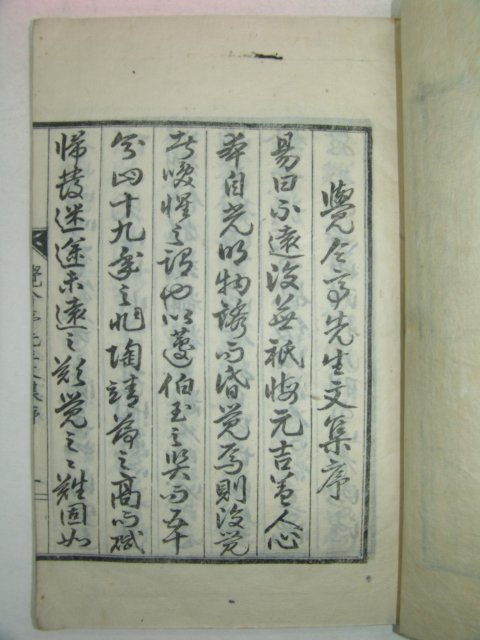 覺今亭先生文集序
易曰不遠復無祇悔元吉蓋人心
本自光明物誘而昏覺焉則復覺
者喚惺之謂也以蘧伯玉之賢而五十
知四十九年之非陶靖節之高而賦
歸發迷途未遠之歎覺之之難固如
覺今亭先生文集序